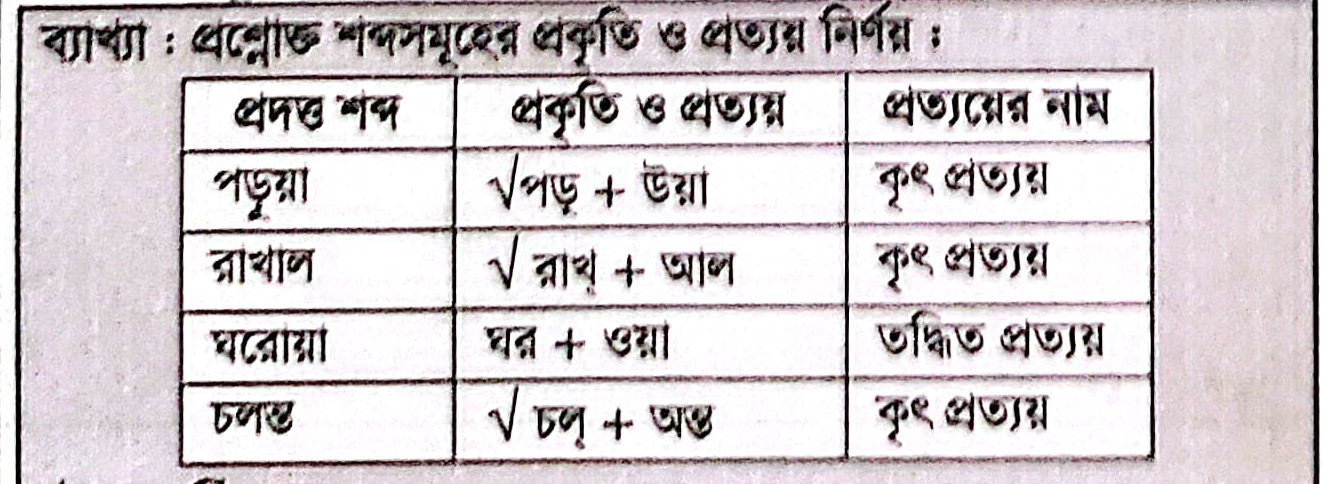 ব্যাখ্যা : প্রশ্নোক্ত শব্দসমূহের প্রকৃতি ও প্রত্যয় নির্ণয় :
প্রদত্ত শব্দ প্রকৃতি ও প্রত্যয় প্রত্যয়ের নাম
পড়ুয়া √পড় + উয়া কৃৎ প্রত্যয়
রাখাল √ রাখ্ + আল কৃৎ প্রত্যয়
ঘরোয়া ঘর + ওয়া তদ্ধিত প্রত্যয়
চলন্ত √ চল্ + অন্ত কৃৎ প্রত্যয়